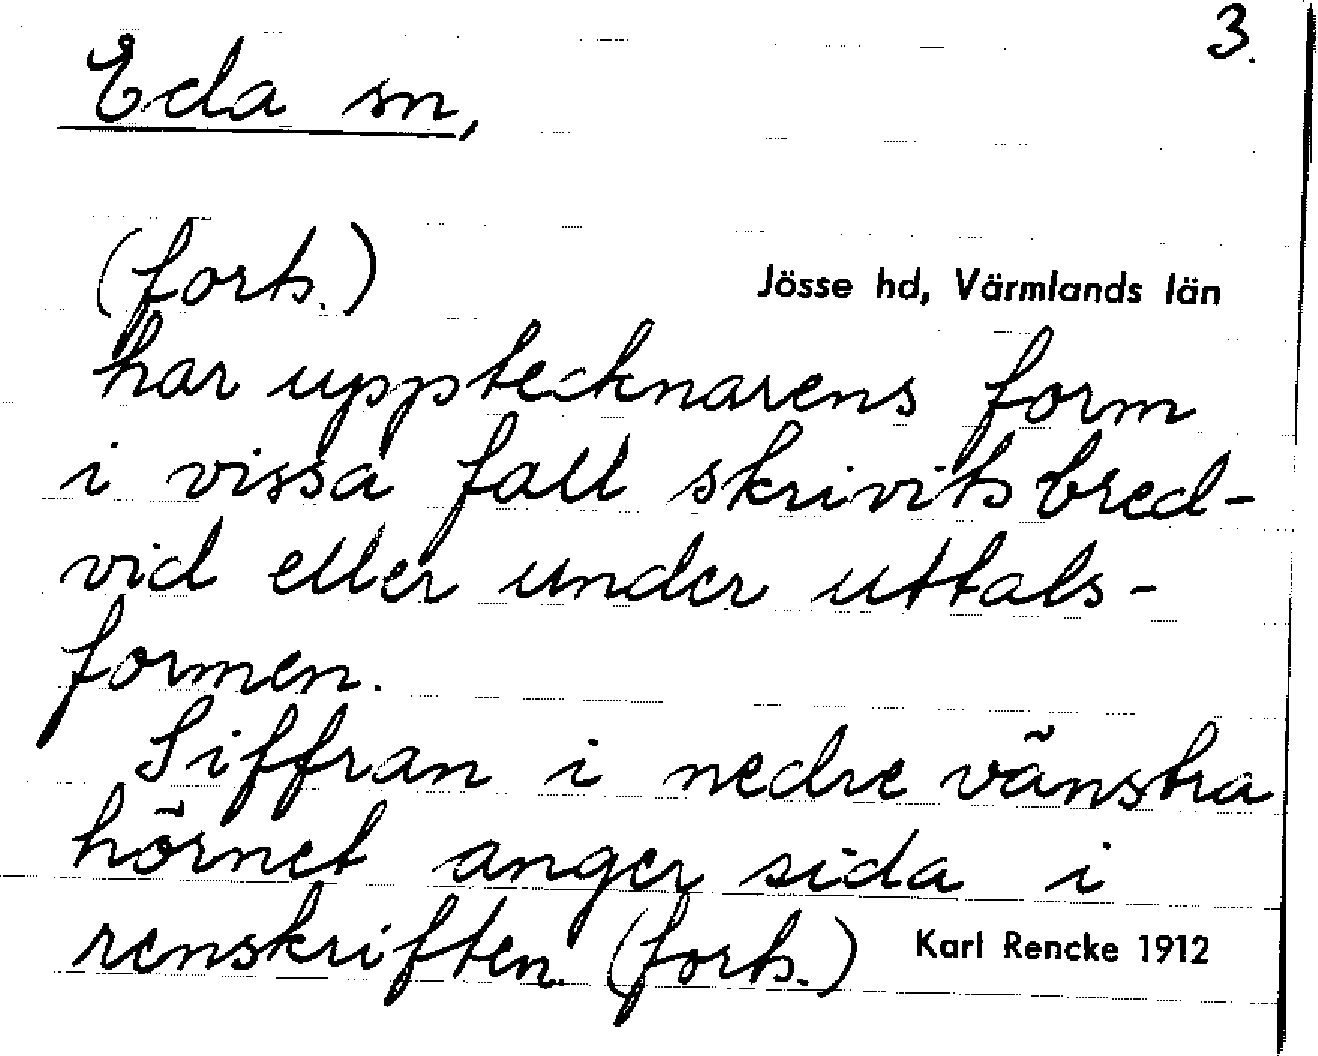 3.
Eda sn,
(forts.)
Jösse hd, Värmlands län
har upptecknarens form
i vissa fall skrivits bred-
vid eller under uttals-
formen.
Siffran i nedre vänstra
hörnet anger sida i
renskriften. (forts.)
Karl Rencke 1912